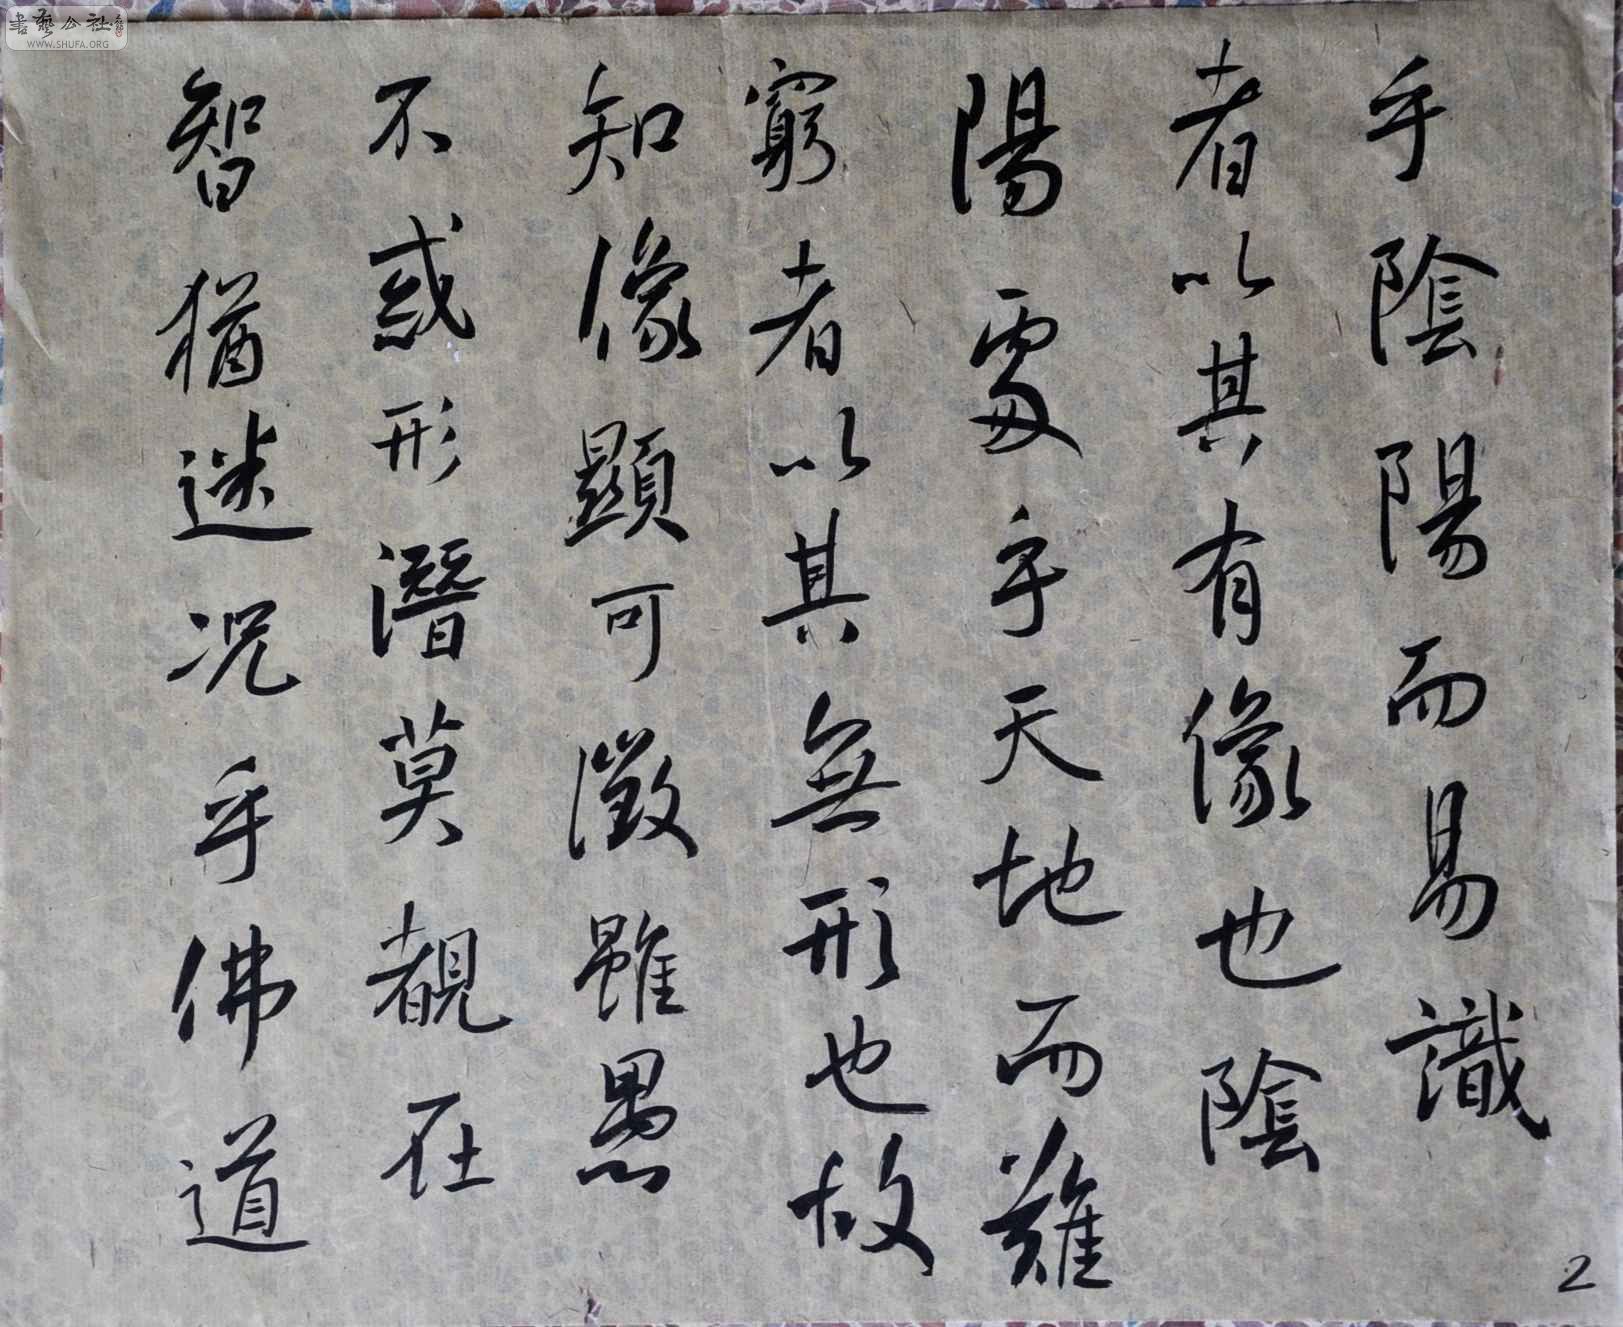 乎陰陽而易識
者以其有像也陰
陽處乎天地而難
窮者以其無形也故
知像顯可徵雖愚
不惑形潛莫覩在
智猶迷况乎佛道
2
書藝公社
WWW.SHUFA.ORG